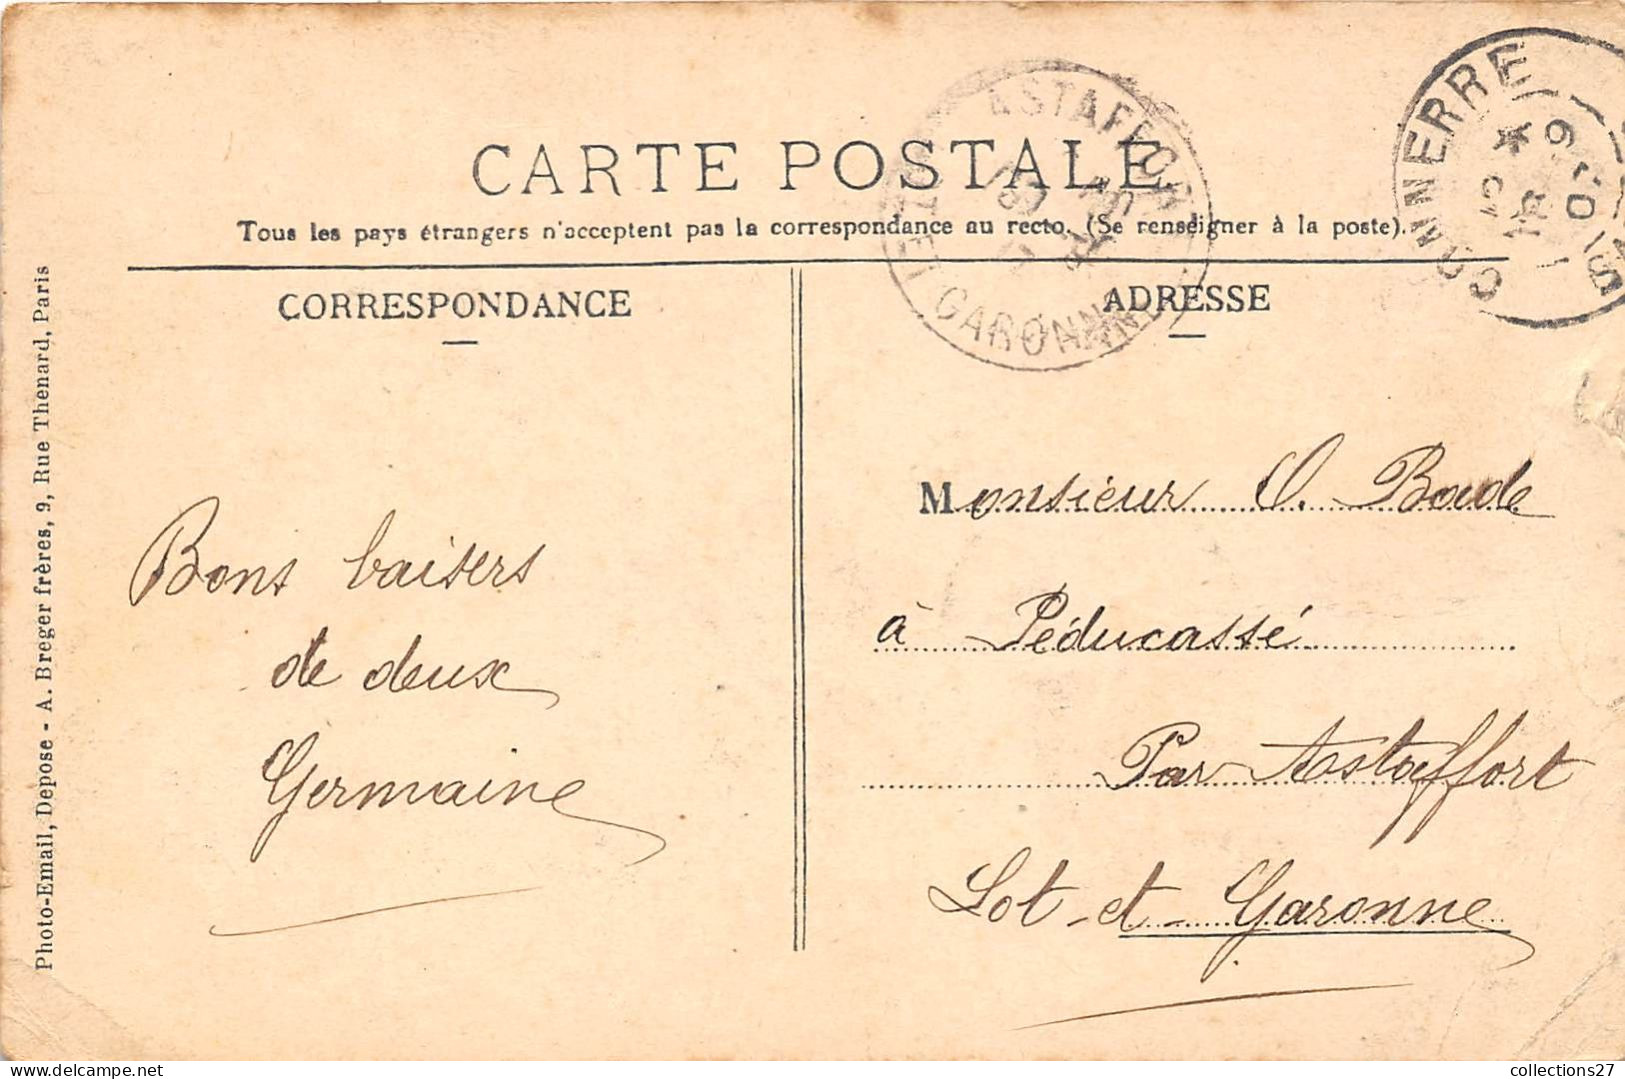 CARTE POSTALE
Tous les pays étrangers n'acceptent pas la correspondance au recto. (Se renseigner à la poste).
CORRESPONDANCE
ADRESSE
Photo-Email, Depose - A. Breger frères, 9, Rue Thenard, Paris
Bons baisers
de deux
Germaine
Monsieur O. Boude
à Péducassé
Par Astaffort
Lot-et-Garonne
ASTAFFORT
LOT ET GARONNE
CONNERRE
collections27